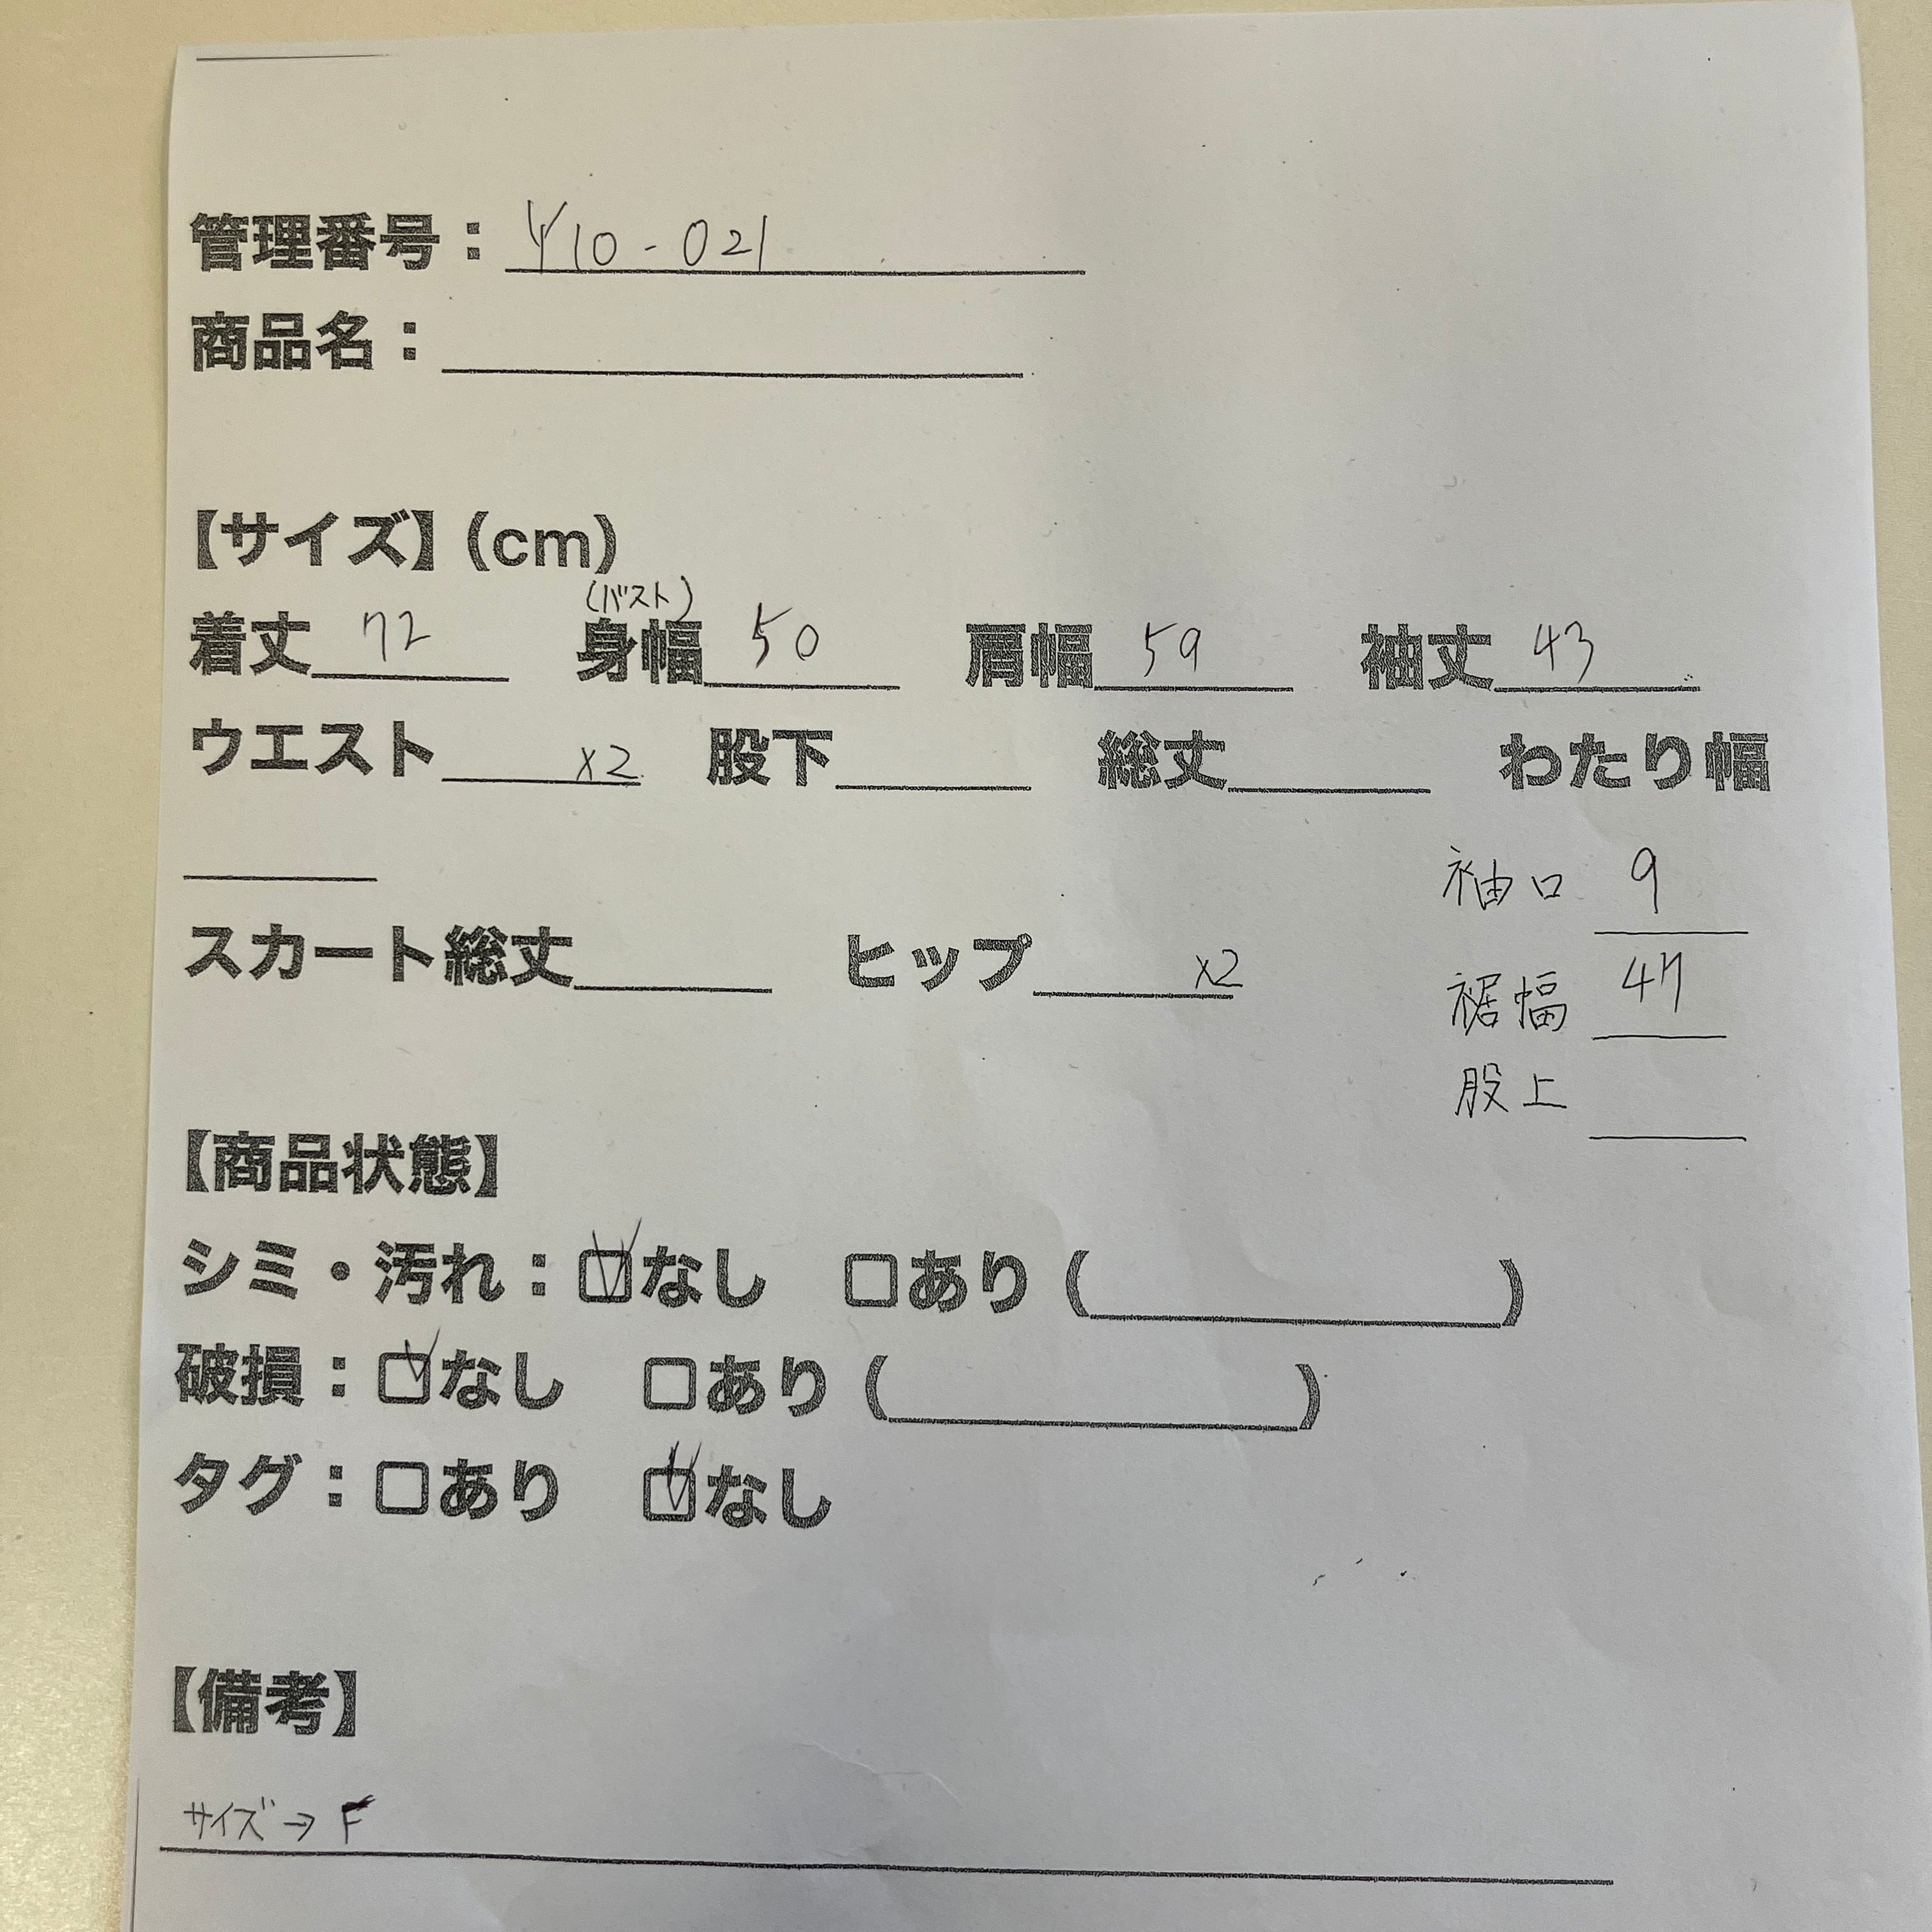 管理番号：Y10-021
商品名：
【サイズ】(cm)
(バスト)
着丈 72 身幅 50 肩幅 59 袖丈 43
ウエスト x2 股下 総丈 わたり幅
袖口 9
スカート総丈 ヒップ x2
裾幅 47
股上
【商品状態】
シミ・汚れ：☑なし □あり ( )
破損：☑なし □あり ( )
タグ：□あり ☑なし
【備考】
サイズ→F